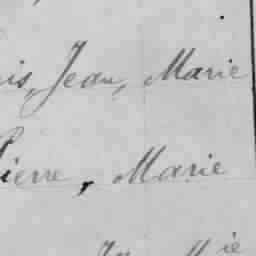 is, Jean, Marie
Pierre, Marie